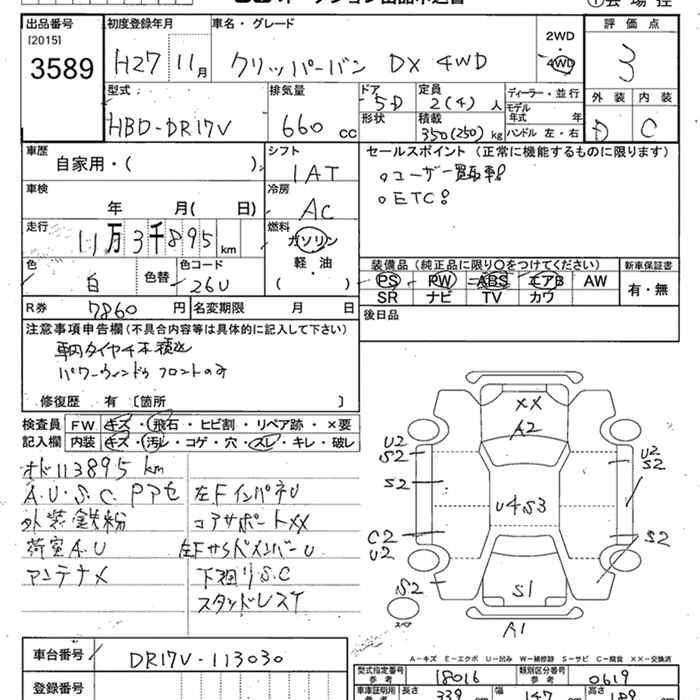 出品番号 初度登録年月 車名・グレード 評価点
[2015] 2WD
3589 H27 11月 クリッパーバン DX 4WD ・ 3
4WD
型式 排気量 ドア 定員 ディーラー・並行 外装 内装
5D 2(4)人 モデル年式 年 D C
HBD-DR17V 660cc 形状 積載 350(250)kg ハンドル 左・右
車歴 シフト セールスポイント (正常に機能するものに限ります)
自家用・( ) IAT 。ユーザー買取車!
車検 冷房 。ETC!
年 月( 日) AC
走行 燃料
11万3千895km ガソリン
軽・油 装備品 (純正品に限り○をつけてください) 新車保証書
色 色替 色コード ( ) PS PW ABS エアB AW 有・無
白 26U SR ナビ TV カワ
R券 7860円 名変期限 月 日 後日品
注意事項申告欄 (不具合内容等は具体的に記入して下さい)
車内タイヤ4本積込
パワーウィンドゥ フロントのみ
修復歴 有 〔箇所 〕
検査員 FW キズ・飛石・ヒビ割・リペア跡・×要
記入欄 内装 キズ・汚レ・コゲ・穴・スレ・キレ・破レ
メーター 113895km
A.U.S.C. Pアセ 左FインパネU
外装鉄粉 コアサポートXX
荷室A.U 左FサイドメンバーU
アンテナメ 下廻りS.C
スタッドレスT
XX
A2
U2 U2
S2 S2
S2
U4S3
C2 S2
U2
S2 S1
スペア
A1
車台番号 DR17V-113030
登録番号
A-キズ E-エクボ U-凹み W-補修跡 S-サビ C-腐食 ××-交換済
型式指定番号 参考 18016 類別区分番号 参考 0619
車庫証明用 参考 長さ 339 幅 147 高さ 189